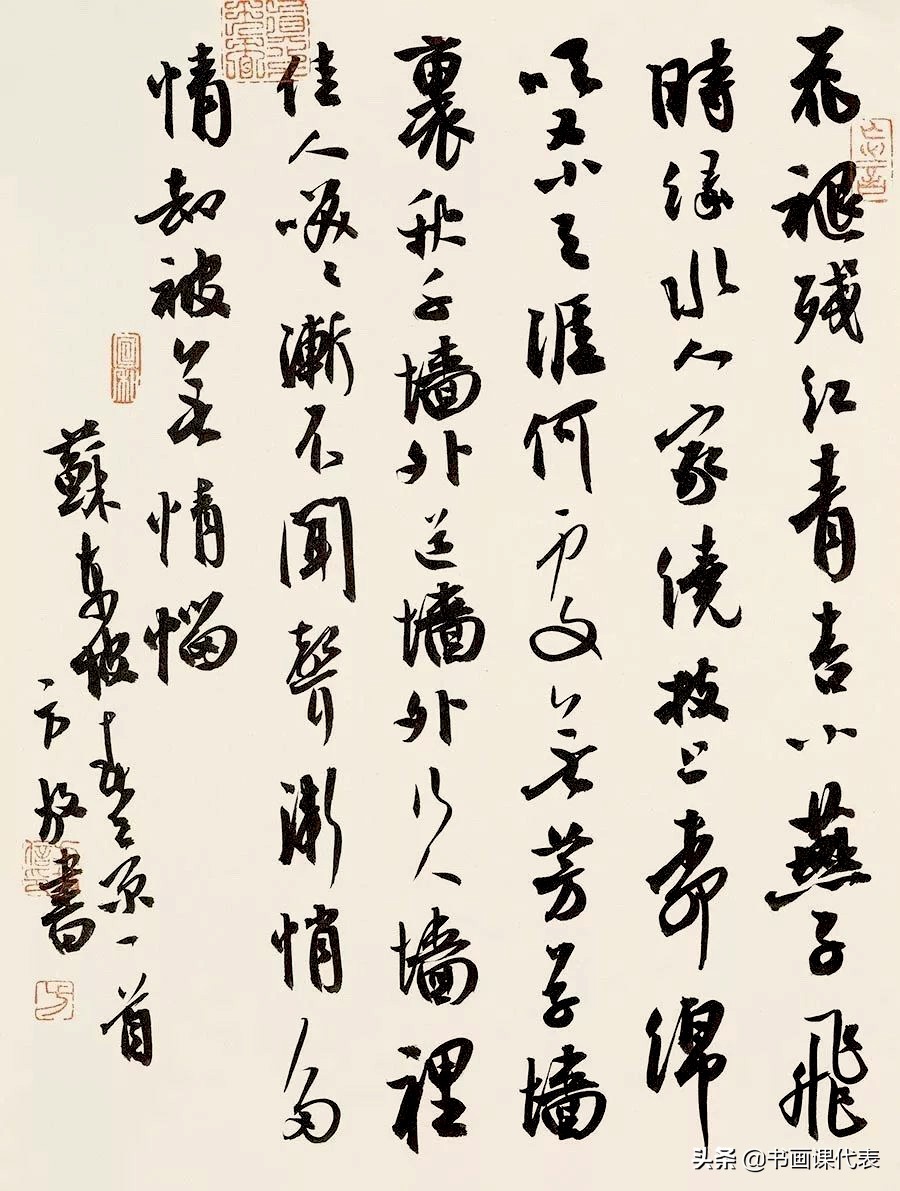 花褪残红青杏小燕子飛
時緑水人家繞枝上柳綿
吹又少天涯何處無芳草墙
裏秋千墙外道墙外行人墙裡
佳人咲〻漸不聞聲漸悄多
情却被無情惱
蘇東坡春景一首
方放書
忘言
头条 @书画课代表